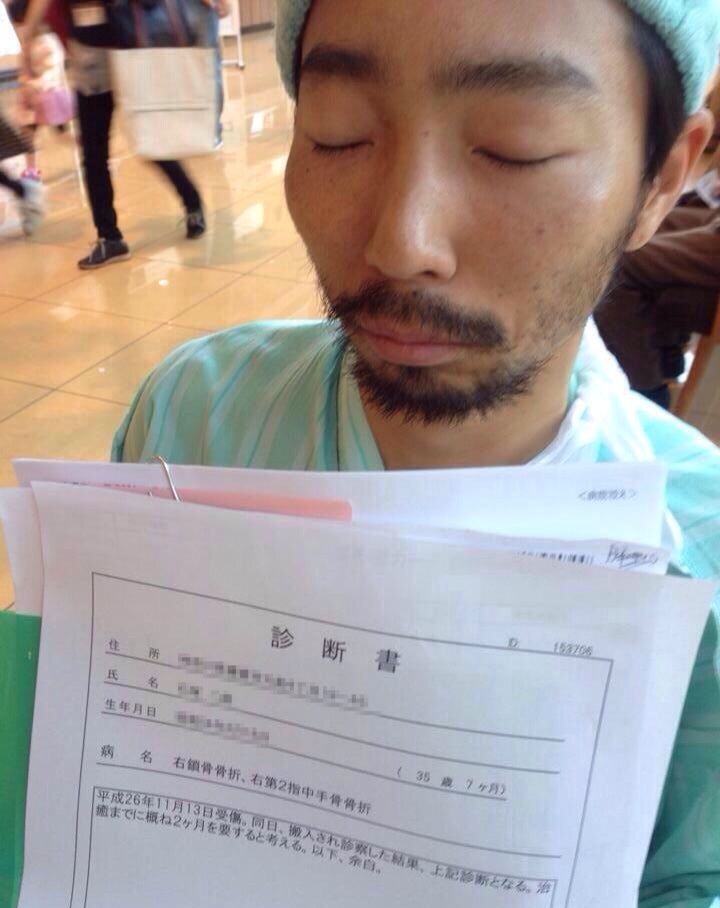 <病院控え>
診断書
ID 153706
住所
氏名
生年月日
( 35 歳 7ヶ月)
病名 右鎖骨骨折、右第2指中手骨骨折
平成26年11月13日受傷。同日、搬入され診察した結果、上記診断となる。治
癒までに概ね2ヶ月を要すると考える。以下、余白。